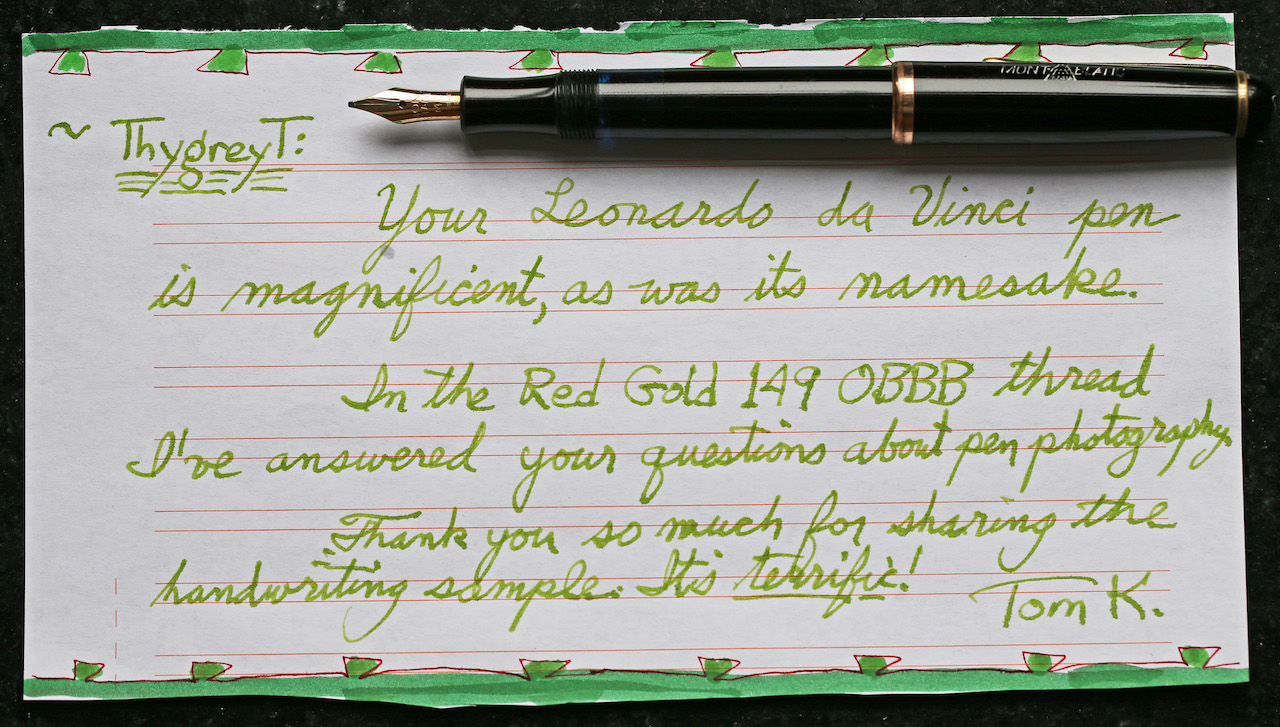 MONTBLANC
~ ThygreyT:
Your Leonardo da Vinci pen
is magnificent, as was its namesake.
In the Red Gold 149 OBBB thread
I've answered your questions about pen photography.
Thank you so much for sharing the
handwriting sample. It's terrific!
Tom K.